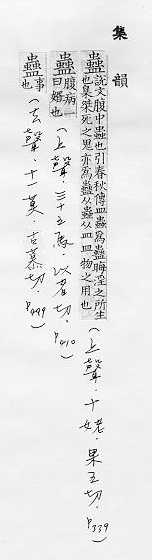 集韻
蠱說文腹中蟲也引春秋傳皿蟲為蠱晦淫之所生
也臬桀死之鬼亦為蠱从蟲从皿皿物之用也(上聲.十姥.果五切.P339)
蠱腹病一
曰媚也(上聲.三十五馬.以者切.P410)
蠱事
也(去聲.十一莫.古慕切.P499)